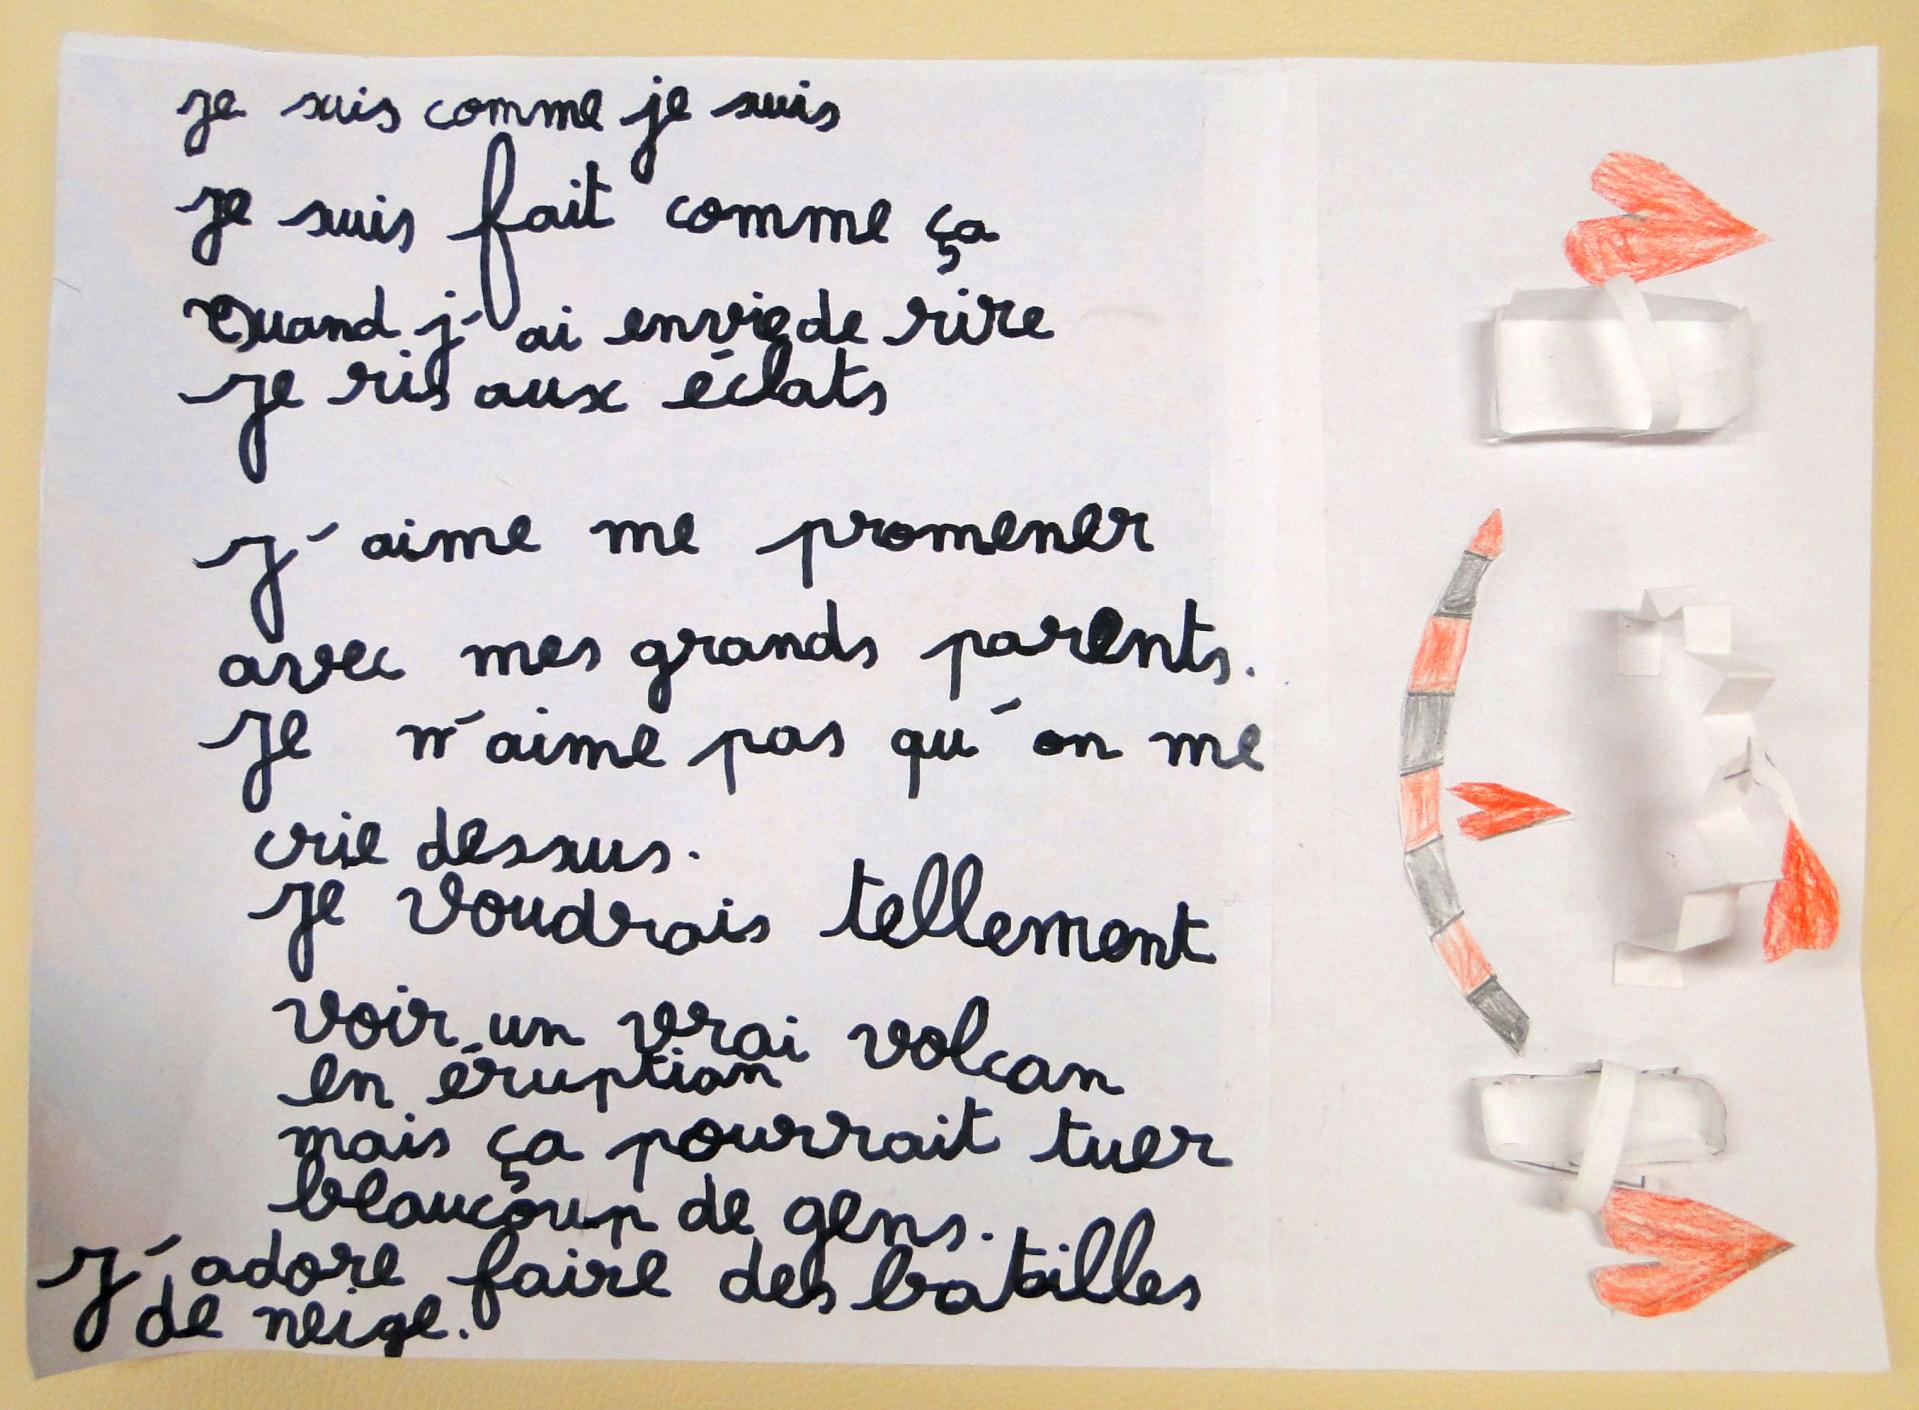 je suis comme je suis
je suis fait comme ça
Quand j'ai envie de rire
je ris aux éclats
J'aime me promener
avec mes grands parents.
Je n'aime pas qu'on me
crie dessus.
Je voudrais tellement
voir un vrai volcan
en éruption
mais ça pourrait tuer
beaucoup de gens.
J'adore faire des batailles
de neige.